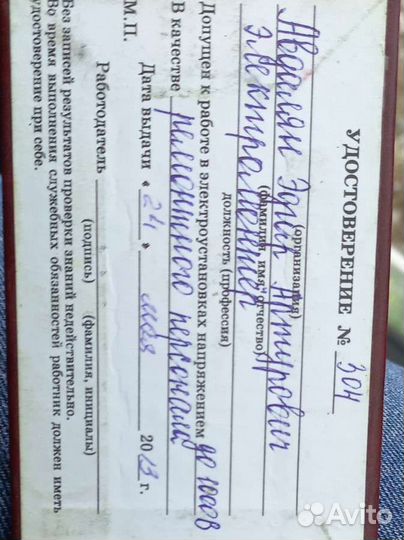 УДОСТОВЕРЕНИЕ № 304
(организация)
Авдалян Эрик Артурович
(фамилия, имя, отчество)
электромонтёр
должность (профессия)
Допущен к работе в электроустановках напряжением до 1000 В
В качестве ремонтного персонала
Дата выдачи « 24 » мая 2013 г.
М.П.
Работодатель
(подпись) (фамилия, инициалы)
Без записей результатов проверки знаний недействительно.
Во время выполнения служебных обязанностей работник должен иметь
удостоверение при себе.
Avito